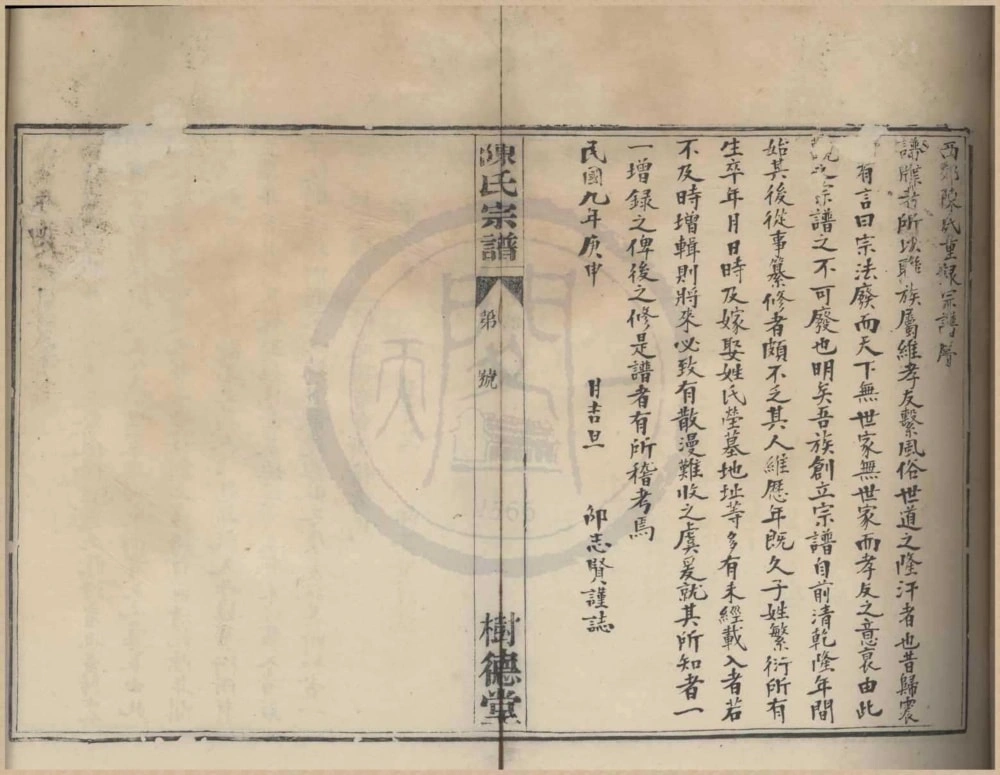 西郊陳氏重脩宗譜序
譜牒者所以聯族屬維孝友繫風俗世道之隆汙者也昔歸震
有言曰宗法廢而天下無世家無世家而孝友之意衰由此
觀之宗譜之不可廢也明矣吾族創立宗譜自前清乾隆年間
始其後從事纂修者頗不乏其人維歷年既久子姓繁衍所有
生卒年月日時及嫁娶姓氏塋墓地址等多有未經載入者若
不及時增輯則將來必致有散漫難收之虞爰就其所知者一
一增錄之俾後之修是譜者有所稽考焉
民國九年庚申 月吉旦 邵志賢謹誌
陳氏宗譜 第 號 樹德堂
1566